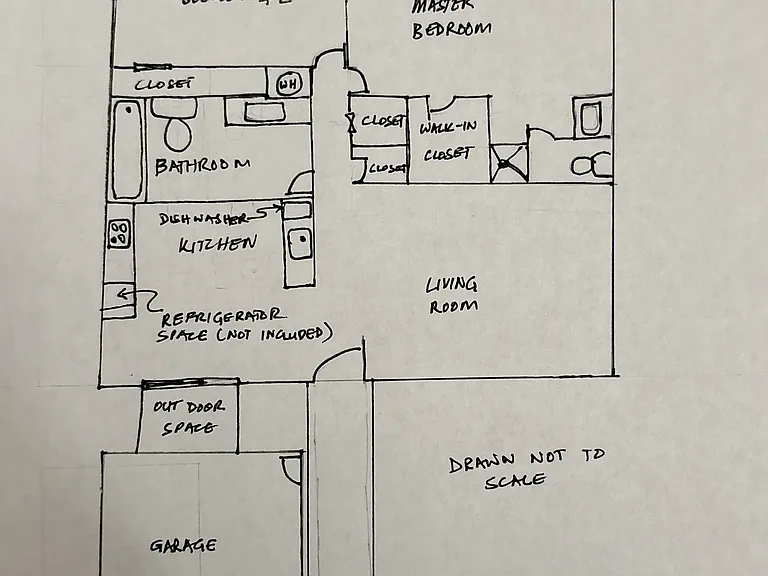 MASTER
BEDROOM
CLOSET
WH
CLOSET
WALK-IN
CLOSET
CLOSET
BATHROOM
DISHWASHER
KITCHEN
LIVING
ROOM
REFRIGERATOR
SPACE (NOT INCLUDED)
OUTDOOR
SPACE
DRAWN NOT TO
SCALE
GARAGE